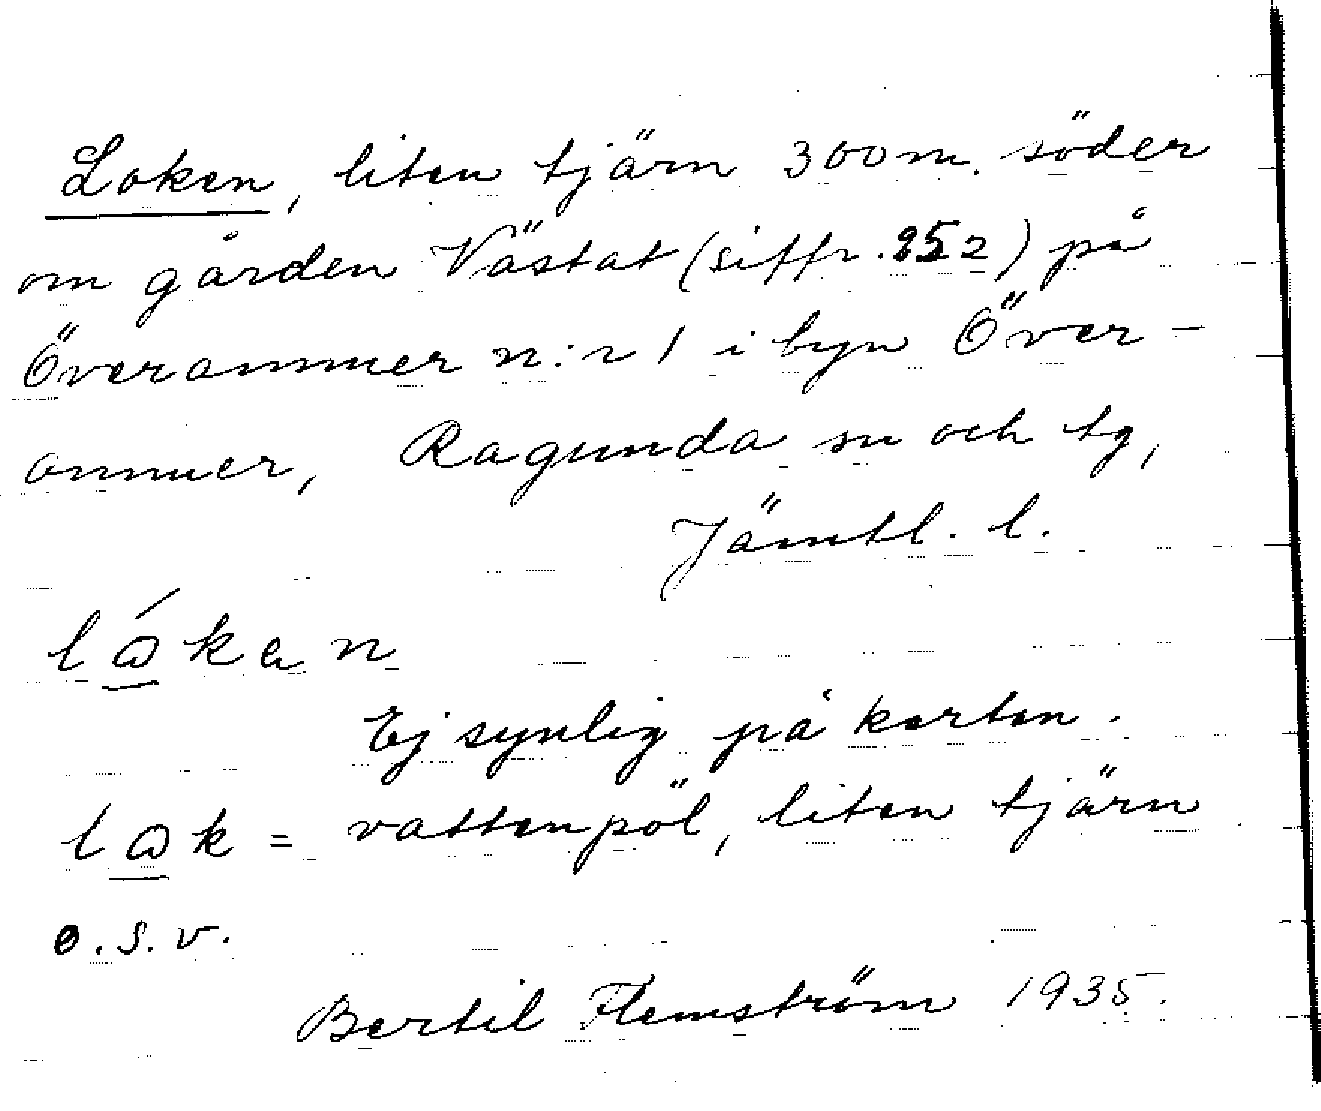 Loken, liten tjärn 300 m. söder
om gården Västat (siffr. 252) på
Överammer n:r 1 i byn Över-
ammer, Ragunda sn och tg,
Jämtl. l.
lɷ́kɐn
Ej synlig på kartan.
lɷk = vattenpöl, liten tjärn
o.s.v.
Bertil Flemström 1935.